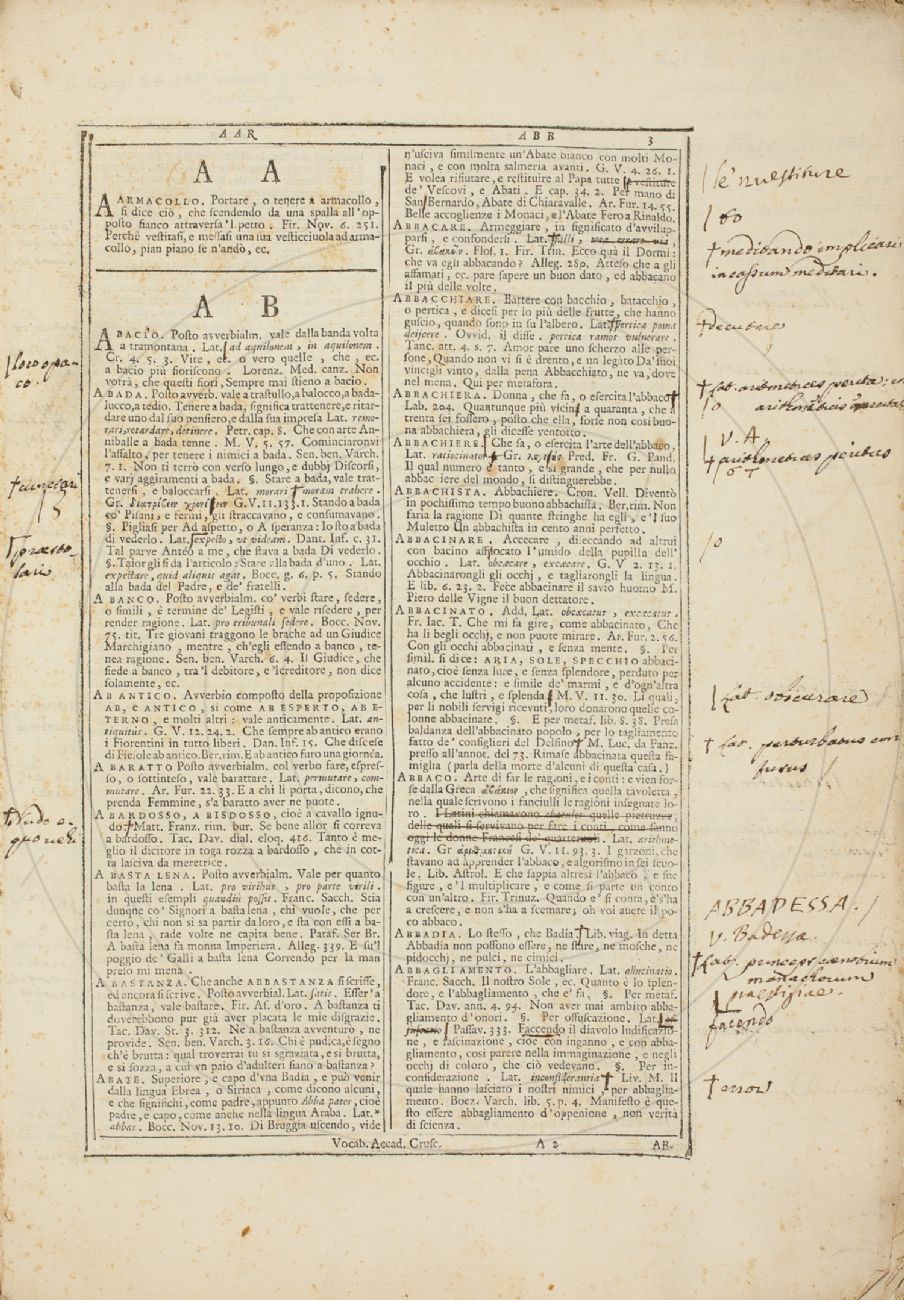 AAR
ABB
3
A A
A ARMACOLLO. Portare, o tenere a armacollo,
si dice ciò, che scendendo da una spalla all'op-
posto fianco attraversa 'l petto. Fir. Nov. 6. 251.
Perchè vestitasi, e messasi una sua vesticciuola ad arma-
collo, pian piano se n'andò, ec.
A B
A BACIO. Posto avverbialm. vale dalla banda volta
a tramontana. Lat. ad aquilonem, in aquilonem.
Cr. 4. 5. 3. Vite, ec. o vero quelle, che, ec.
a bacio più fioriscono. Lorenz. Med. canz. Non
vorrà, che questi fiori, Sempre mai stieno a bacio.
A BADA. Posto avverb. vale a trastullo, a balocco, a bada-
lucco, a tedio. Tenere a bada, significa trattenere, e ritar-
dare uno dal suo pensiero, e dalla sua impresa Lat. remo-
rari, retardare, detinere. Petr. cap. 8. Che con arte An-
niballe a bada tenne. M. V. 5. 57. Cominciaronvi
l'assalto, per tenere i nimici a bada. Sen. ben. Varch.
7. 1. Non ti terrò con verso lungo, e dubbj Discorsi,
e varj aggiramenti a bada. §. Stare a bada, vale trat-
tenersi, e baloccarsi. Lat. morari moram trahere.
Gr. G. V. 11. 133. 1. Stando a bada
co' Pisani, e fermi, gli straccavano, e consumavano.
§. Pigliasi per Ad aspetto, o A speranza: Io sto a bada
di vederlo. Lat. expecto, ut videam. Dant. Inf. c. 31.
Tal parve Anteo a me, che stava a bada Di vederlo.
§. Talor gli si da l'articolo: Stare alla bada d'uno. Lat.
expectare, quid aliquis agat. Bocc. g. 6. p. 5. Stando
alla bada del Padre, e de' fratelli.
A BANCO. Posto avverbialm. co' verbi stare, sedere,
o simili, è termine de' Legisti, e vale risedere, per
render ragione. Lat. pro tribunali sedere. Bocc. Nov.
75. tit. Tre giovani traggono le brache ad un Giudice
Marchigiano, mentre, ch'egli essendo a banco, te-
nea ragione. Sen. ben. Varch. 6. 4. Il Giudice, che
siede a banco, tra 'l debitore, e 'l creditore, non dice
solamente, ec.
AB ANTICO. Avverbio composto della proposizione
AB, e ANTICO, si come AB ESPERTO, AB E-
TERNO, e molti altri: vale anticamente. Lat. an-
tiquitùs. G. V. 12. 24. 2. Che sempre ab antico erano
i Fiorentini in tutto liberi. Dan. Inf. 15. Che discese
di Fiesole ab antico. Ber. rim. E ab antico furo una giornea.
A BARATTO Posto avverbialm. col verbo fare, espres-
so, o sottinteso, vale barattare. Lat. permutare, com-
mutare. Ar. Fur. 22. 33. E a chi li porta, dicono, che
prenda Femmine, s'a baratto aver ne puote.
A BARDOSSO, A BISDOSSO, cioè a cavallo ignu-
do Matt. Franz. rim. bur. Se bene allor si correva
a bardosso. Tac. Dav. dial. eloq. 416. Tanto è me-
glio il dicitore in toga rozza a bardosso, che in cot-
ta lasciva da meretrice.
A BASTA LENA. Posto avverbialm. Vale per quanto
basta la lena. Lat. pro viribus, pro parte virili.
in questi esempli quandiù possit. Franc. Sacch. Stia
dunque co' Signori a basta lena, chi vuole, che per
certo, chi non si sa partir da loro, e sta con essi a ba-
sta lena, rade volte ne capita bene. Pataf. Ser Br.
A basta lena fa monna Imperiera. Alleg. 339. E su'l
poggio de' Galli a basta lena Correndo per la man
preso mi mena.
A BASTANZA. Che anche ABBASTANZA si scrisse,
ed ancora si scrive. Posto avverbial. Lat. satis. Esser' a
bastanza, vale bastare. Fir. As. d'oro. A bastanza ti
doverebbono pur già aver placata le mie disgrazie.
Tac. Dav. St. 3. 312. Ne a bastanza avventurò, ne
provide. Sen. ben. Varch. 3. 16. Chi è pudica, è segno
ch'è brutta: qual troverrai tu sì sgraziata, e sì brutta,
e sì sozza, a cui un paio d'adulteri siano a bastanza?
ABATE. Superiore, e capo d'una Badia, e può venir
dalla lingua Ebrea, o Siriaca, come dicono alcuni,
e che significhi, come padre, appunto Abba pater, cioè
padre, e capo, come anche nella lingua Araba. Lat.*
abbas. Bocc. Nov. 13. 10. Di Bruggia uscendo, vide
n'usciva similmente un'Abate bianco con molti Mo-
naci, e con molta salmeria avanti. G. V. 4. 26. 1.
E volea rifiutare, e restituire al Papa tutte le vestiture
de' Vescovi, e Abati. E cap. 34. 2. Per mano di
San Bernardo, Abate di Chiaravalle. Ar. Fur. 14. 55.
Belle accoglienze i Monaci, e l'Abate Fero a Rinaldo.
ABBACARE. Armeggiare, in significato d'avvilup-
parsi, e confondersi. Lat. falli,
Gr. Flos. 1. Fir. Trin. Ecco quà il Dormi:
che va egli abbacando? Alleg. 289. Atteso che a gli
affamati, ec. pare sapere un buon dato, ed abbacano
il più delle volte.
ABBACCHIARE. Battere con bacchio, batacchio,
o pertica, e dicesi per lo più delle frutte, che hanno
guscio, quando sono in su l'albero. Lat. pertica poma
deijcere. Ovvid. il disse. pertica ramos vulnerare.
Tanc. att. 4. s. 7. Amor pare uno scherzo alle per-
sone, Quando non vi si è drento, e un legato Da' suoi
vincigli vinto, dalla pena Abbacchiato, ne va, dove
nel mena. Qui per metafora.
ABBACHIERA. Donna, che fa, o esercita l'abbaco
Lab. 204. Quantunque più vicin a quaranta, che a
trenta sei fossero, posto che ella, forse non così buo-
na abbachiera, gli dicesse ventotto.
ABBACHIERE Che fa, o esercita l'arte dell'abbaco,
Lat. ratiocinator Gr. Pred. Fr. G. Pand.
Il qual numero è tanto, e sì grande, che per nullo
abbachiere del mondo, si distinguerebbe.
ABBACHISTA. Abbachiere. Cron. Vell. Diventò
in pochissimo tempo buono abbachista. Ber. rim. Non
faria la ragione Di quante stringhe ha egli, e 'l suo
Muletto Un abbachista in cento anni perfetto.
ABBACINARE. Accecare, di eccando ad altrui
con bacino affuocato l'umido della pupilla dell'
occhio. Lat. obcæcare, excæcare. G. V. 2. 13. 1.
Abbacinarongli gli occhj, e tagliarongli la lingua.
E lib. 6. 23. 2. Fece abbacinare il savio huomo M.
Piero delle Vigne il buon dettatore.
ABBACINATO. Add. Lat. obcæcatus, excæcatus.
Fr. Iac. T. Che mi fa gire, come abbacinato, Che
ha li begli occhj, e non puote mirare. Ar. Fur. 2. 56.
Con gli occhi abbacinati, e senza mente. §. Per
simil. si dice: ARIA, SOLE, SPECCHIO abbaci-
nato, cioè senza luce, e senza splendore, perduto per
alcuno accidente: e simile de' marmi, e d'ogn'altra
cosa, che lustri, e splenda M. V. 11. 30. Li quali,
per li nobili servigi ricevuti, loro donarono quelle co-
lonne abbacinate. §. E per metaf. lib. 8. 38. Presa
baldanza dell'abbacinato popolo, per lo tagliamento
fatto de' consiglieri del Delfino M. Luc. da Panz.
presso all'annot. del 73. Rimase abbacinata questa fa-
miglia (parla della morte d'alcuni di questa casa.)
ABBACO. Arte di far le ragioni, e i conti: e vien for-
se dalla Greca, che significa quella tavoletta,
nella quale scrivono i fanciulli le ragioni insegnate lo-
ro. I Latini chiamavono abacolos quelle pietruzze,
delle quali si servivano per fare i conti, come fanno
oggi le donne Francesi de' quarteruoli. Lat. arithme-
tica. Gr G. V. 11. 93. 3. I garzoni, che
stavano ad apprender l'abbaco, e algorismo in sei scuo-
le. Lib. Astrol. E che sappia altresì l'abbaco, e sue
figure, e 'l multiplicare, e come si parte un conto
con un'altro. Fir. Trinuz. Quando e' si conta, e' s'ha
a crescere, e non s'ha a scemare; oh voi avete il po-
co abbaco.
ABBADIA. Lo stesso, che Badia Lib. viag. In detta
Abbadia non possono essere, ne stare, ne mosche, ne
pidocchj, ne pulci, ne cimici.
ABBAGLIAMENTO. L'abbagliare. Lat. allucinatio.
Franc. Sacch. Il nostro Sole, ec. Quanto è lo splen-
dore, e l'abbagliamento, che e' fa. §. Per metaf.
Tac. Dav. ann. 4. 94. Non aver mai ambito abba-
gliamento d'onori. §. Per offuscazione. Lat.
Passav. 333. Faccendo il diavolo ludificazio-
ne, e fascinazione, cioè con inganno, e con abba-
gliamento, così parere nella immaginazione, e negli
occhj di coloro, che ciò vedevano. §. Per in-
considerazione. Lat. inconsiderantia Liv. M. Il
quale hanno lasciato i nostri nimici, per abbaglia-
mento. Boez. Varch. lib. 5. p. 4. Manifesto è que-
sto essere abbagliamento d'oppenione, non verità
di scienza.
Vocab. Accad. Crusc.
A 2
AB-
loco opa-
co.
cunctari
præsto-
lari
Nudo e-
quo vehi
le' nvestiture
meditando implicari
in cassum meditari.
decutere
Lat. aritmetices perita,
V. A.
arithmetices peritus
o
Lat. obscurare
Lat. perturbatus con
fusus
ABBADESSA.
v. Badessa.
Lat. princeps cænobium
monachorum
præstigiæ.
facendo
error